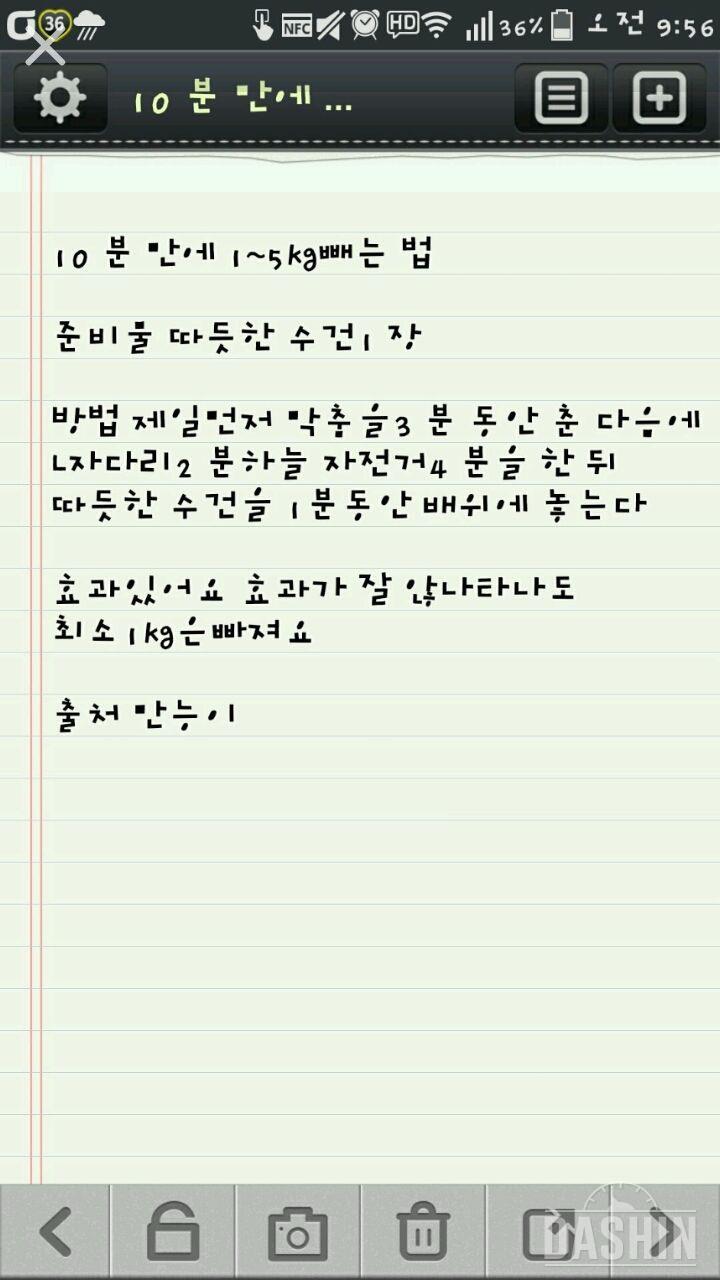 36
NFC HD 36% 오전 9:56
10분 만에...
10분 만에 1~5kg빼는 법
준비물 따뜻한 수건1장
방법 제일먼저 막춤을3분 동안 춘 다음에
L자다리2분하늘 자전거4분을 한 뒤
따듯한 수건을 1분동안 배위에 놓는다
효과있어요 효과가 잘 않나타나도
최소1kg은빠져요
출처 만능이
DASHIN